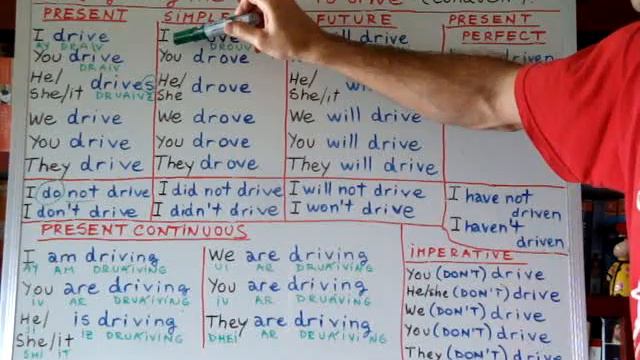 PRESENT
I drive
AY DRAIV
You drive
DRAIV
He/
She/it drives
DRUAIVZ
We drive
You drive
They drive
I do not drive
I don't drive
I
DROUV
You drove
He/
She drove
We drove
You drove
They drove
I did not drive
I didn't drive
FUTURE
drive
He/
She/it
We will drive
You will drive
They will drive
I will not drive
I won't drive
PRESENT
PERFECT
I have not
driven
I haven't
driven
PRESENT CONTINUOUS
I am driving
AY AM DRUAIVING
You are driving
IU AR DRUAIVING
He/ is driving
She/it IZ DRUAIVING
SHI IT
We are driving
UI AR DRUAIVING
You are driving
IU AR DRUAIVING
They are driving
DHEI AR DRUAIVING
IMPERATIVE
You (DON'T) drive
He/she (DON'T) drive
We (DON'T) drive
You (DON'T) drive
They (DON'T) drive